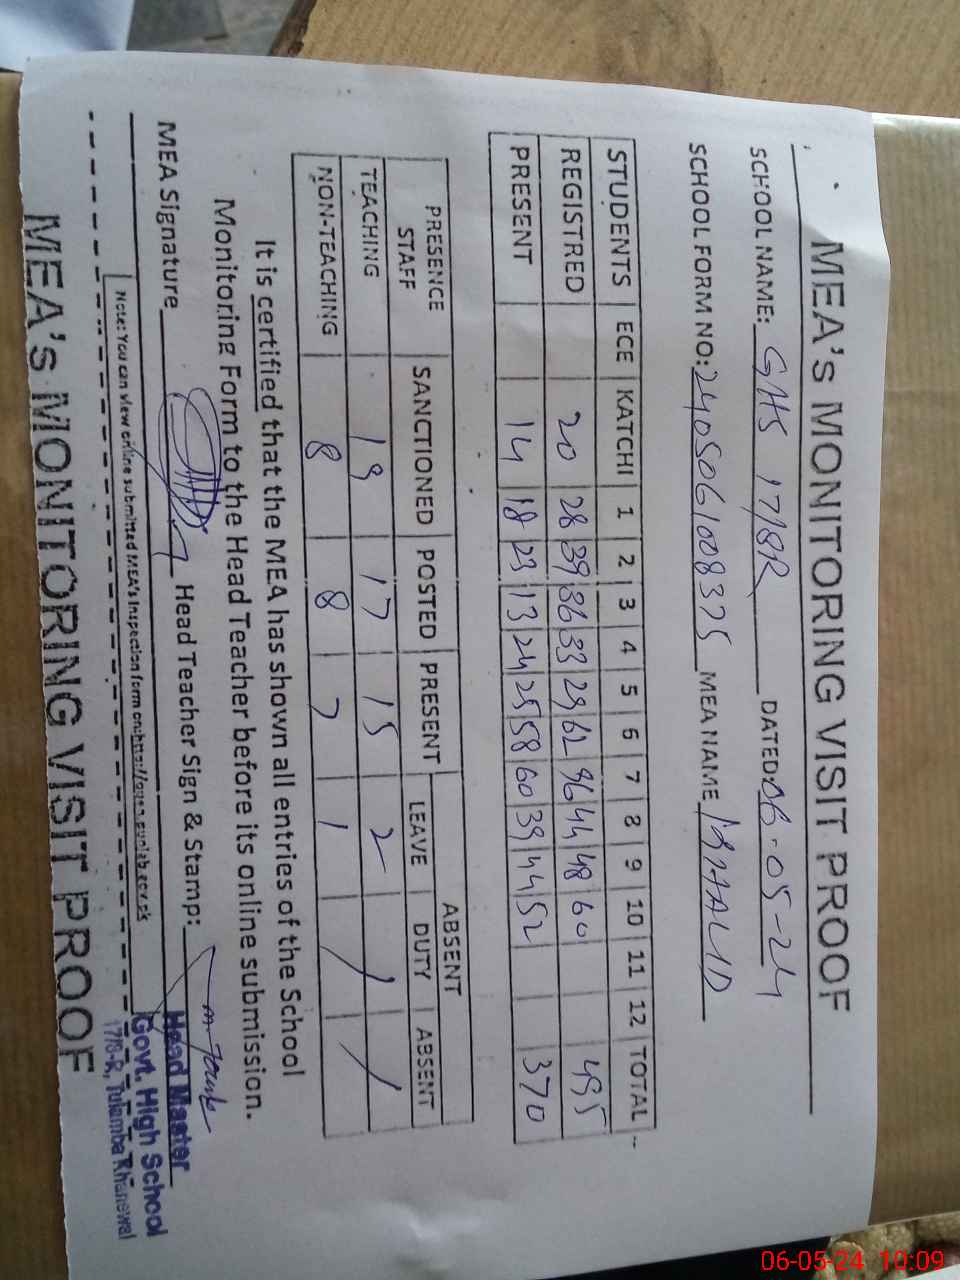 MEA's MONITORING VISIT PROOF
SCHOOL NAME: GHS 17/8R DATED: 06-05-24
SCHOOL FORM NO: 24050610083 75 MEA NAME KHALID
STUDENTS ECE KATCHI 1 2 3 4 5 6 7 8 9 10 11 12 TOTAL
REGISTRED 20 28 39 36 33 29 62 96 44 48 60 495
PRESENT 14 18 23 13 24 25 58 60 39 44 52 370
PRESENCE STAFF SANCTIONED POSTED PRESENT ABSENT
LEAVE DUTY ABSENT
TEACHING 19 17 15 2 / /
NON-TEACHING 8 8 7 1
It is certified that the MEA has shown all entries of the School
Monitoring Form to the Head Teacher before its online submission.
MEA Signature Head Teacher Sign & Stamp:
Head Master
Govt. High School
17/8-R, Tulamba Khanewal
Note: You can view online submitted MEA's Inspection form on:http://open.punjab.gov.pk
MEA's MONITORING VISIT PROOF
06-05-24 10:09